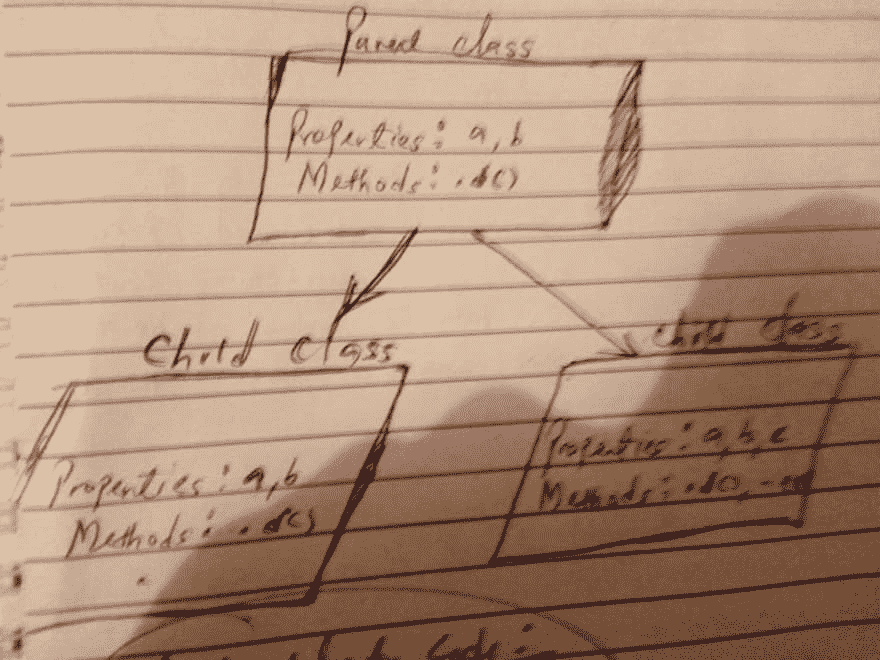 Parent class
Properties: a, b
Methods: .d()
Child class
Properties: a, b
Methods: .d()
Child class
Properties: a, b, c
Methods: .d(),
Code: